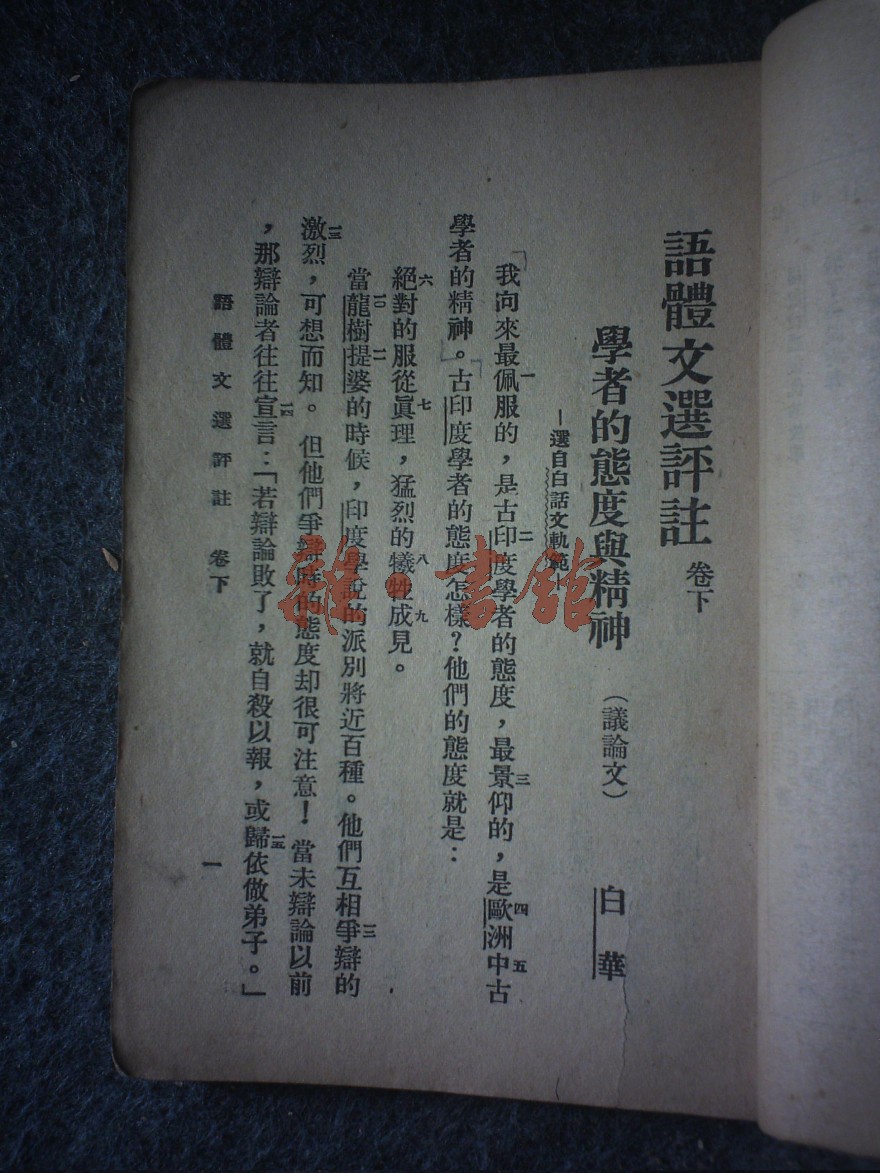 語體文選評註 卷下
學者的態度與精神 (議論文) 白華
—選自白話文軌範—
「我向來最一佩服的,是古二印度學者的態度,最三景仰的,是四歐洲五中古
學者的精神。」「古印度學者的態度怎樣?他們的態度就是:
六絕對的服從七眞理,猛烈的八犧牲九成見。
當一〇龍樹一一提婆的時候,印度學說的派別將近百種。他們互相一二爭辯的
一三激烈,可想而知。但他們爭辯時的態度却很可注意!當未辯論以前
,那辯論者往往一四宣言:「若辯論敗了,就自殺以報,或一五歸依做弟子。」
語體文選評註 卷下
一
雜·書館